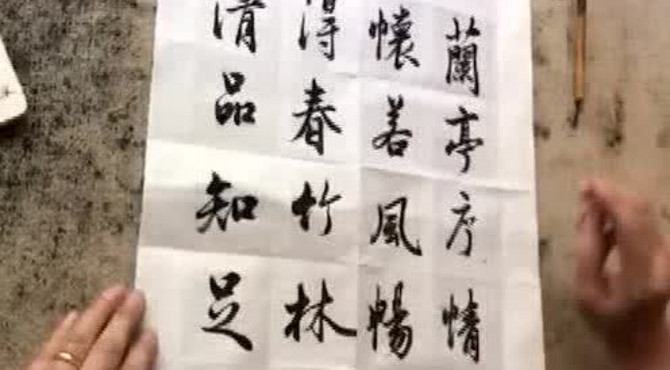 蘭亭序情
懷若風暢
得春竹林
清品知足